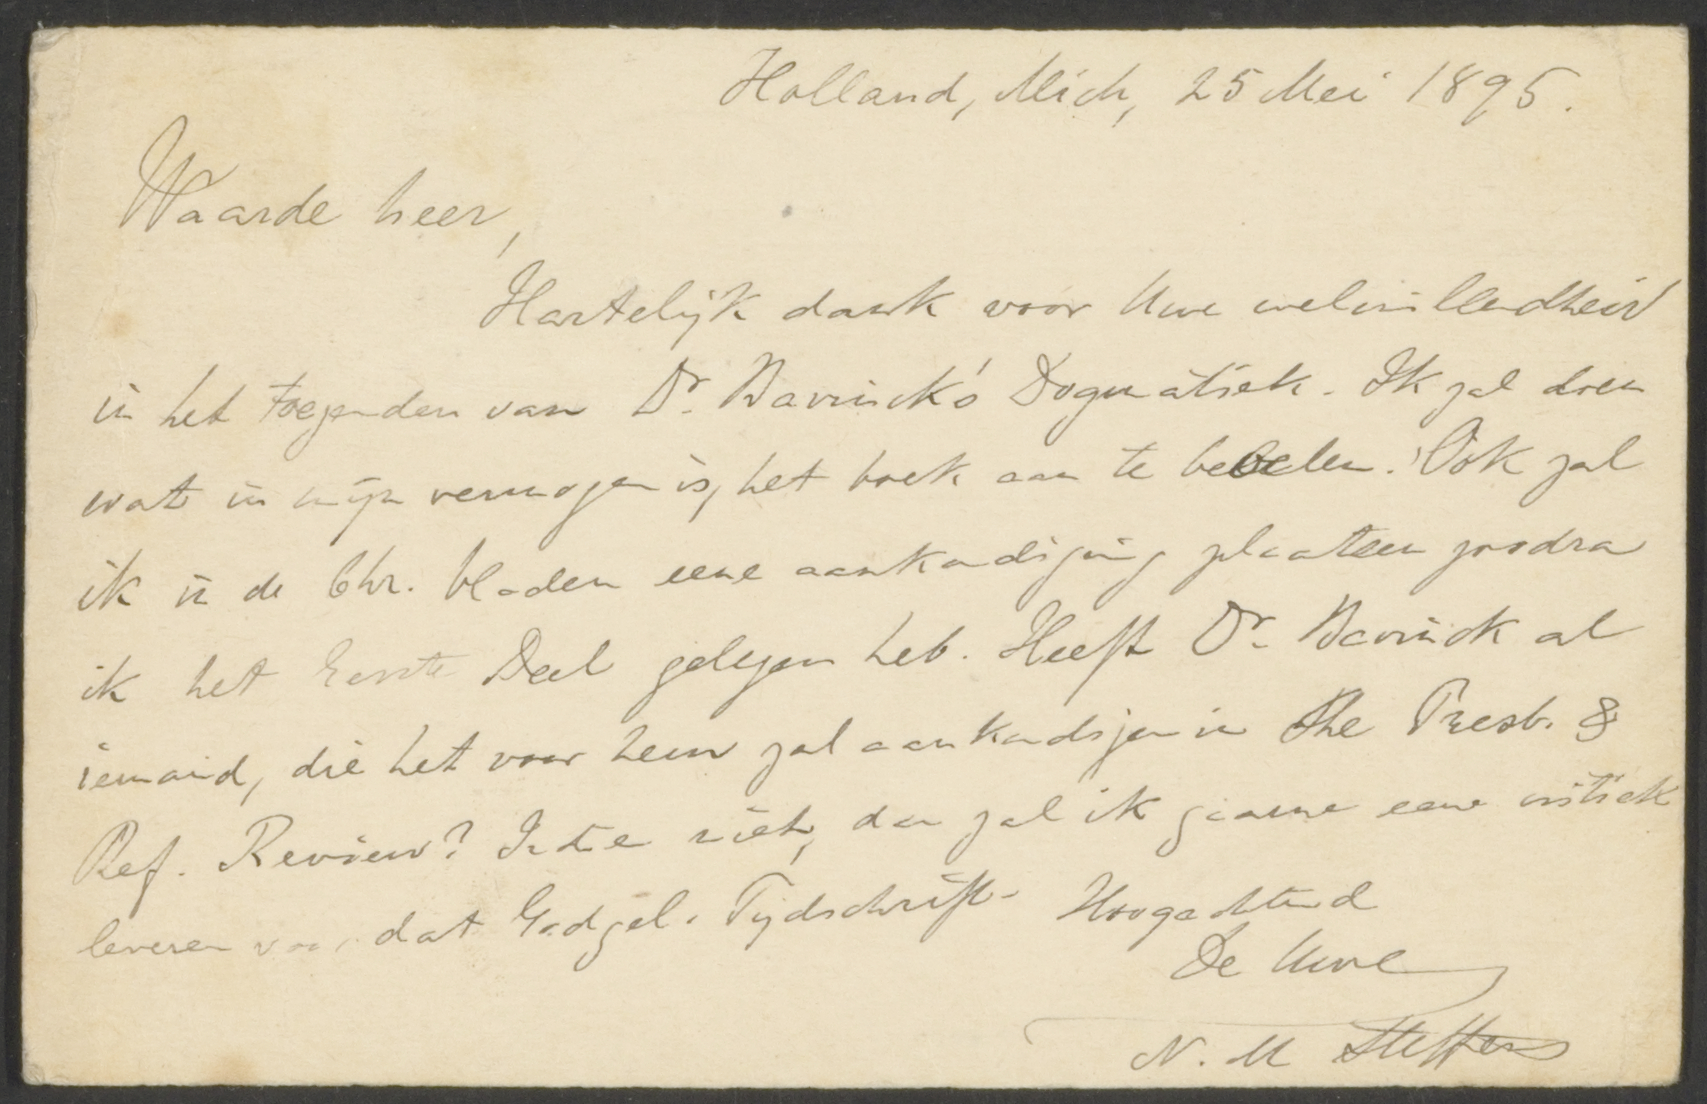 Holland, Mich, 25 Mei 1895.
Waarde heer,
Hartelijk dank voor Uwe welwillendheid
in het toezenden van Dr. Bavinck's Dogmatiek. Ik zal doen
wat in mijn vermogen is, het boek aan te bevelen. Ook zal
ik in de Chr. bladen eene aankondiging plaatsen zoodra
ik het Eerste Deel gelezen heb. Heeft Dr. Bavinck al
iemand, die het voor hem zal aankondigen in The Presb. &
Ref. Review? Indien niet, dan zal ik gaarne eene critiek
leveren voor dat Godgel. Tijdschrift. Hoogachtend
De Uwe
N. M Steffens